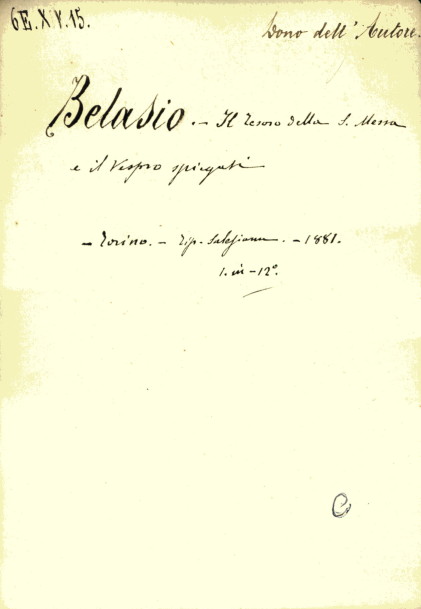 6E.XV.15.
Dono dell'Autore.
Belasio. - Il Tesoro della S. Messa
e il Vespro spiegati
- Torino. - Tip. Salesiana. - 1881.
1. in-12°.
C